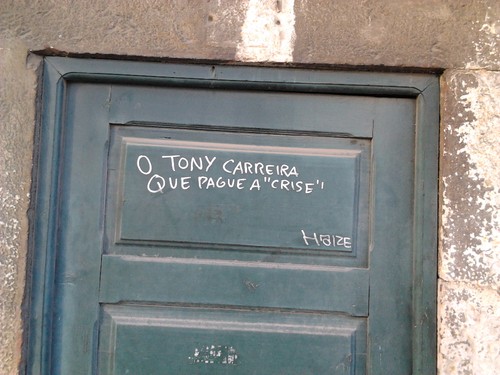 O TONY CARREIRA
QUE PAGUE A "CRISE"!